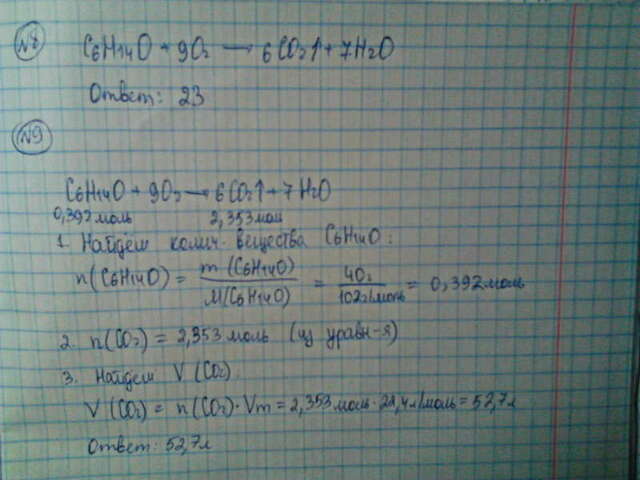 №8
C6H14O + 9O2 → 6CO2↑ + 7H2O
Ответ: 23
№9
C6H14O + 9O2 → 6CO2↑ + 7H2O
0,392 моль 2,353 мол
1. Найдём колич. вещества C6H14O:
n(C6H14O) = m(C6H14O) / M(C6H14O) = 40г / 102г/моль = 0,392 моль
2. n(CO2) = 2,353 моль (из уравн-я)
3. Найдём V(CO2)
V(CO2) = n(CO2)·Vm = 2,353 моль · 22,4 л/моль = 52,7 л
Ответ: 52,7 л